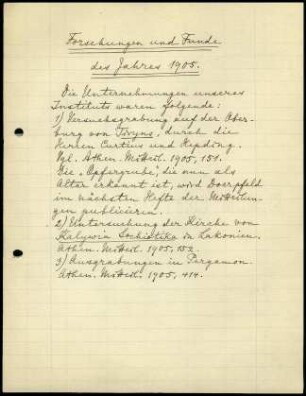 Forschungen und Funde
des Jahres 1905.
Die Unternehmungen unseres
Instituts waren folgende:
1) Versuchsgrabung auf der Ober-
burg von Tiryns, durch die
Herren Curtius und
Vgl. Athen. Mitteil. 1905, 151.
Die „Opfergrube“, die nun als
Altar erkannt ist, wird Doerpfeld
im nächsten Hefte der Mitteilun-
gen publicieren.
2) Untersuchung der Kirche von
Kalywia Sochiotika in Lakonien.
Athen. Mitteil. 1905, 152.
3) Ausgrabungen in Pergamon
Athen. Mitteil. 1905, 414.